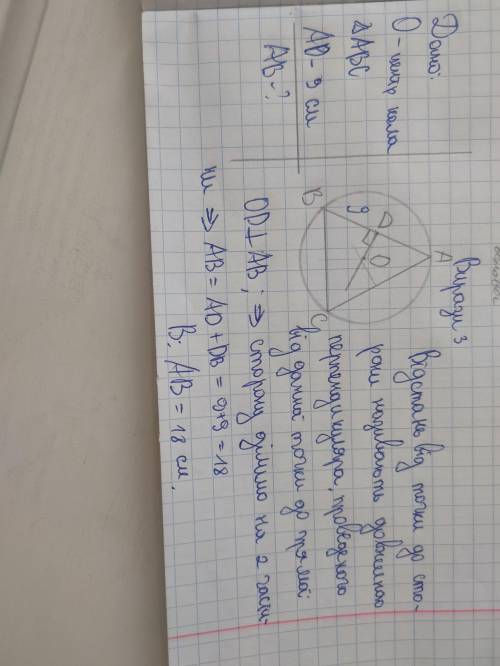 Дано:
О - центр кола
△ABC
AD - 9 см
AB - ?
Вправа 3
A
B
C
D
O
9
Відстань від точки до сто-
рони називають довжиною
перпендикуляра, проведеного
від данної точки до прямої
OD⊥AB; ⇒ сторону ділимо на 2 части-
ни ⇒ AB = AD + DB = 9+9 = 18
В: AB = 18 см.